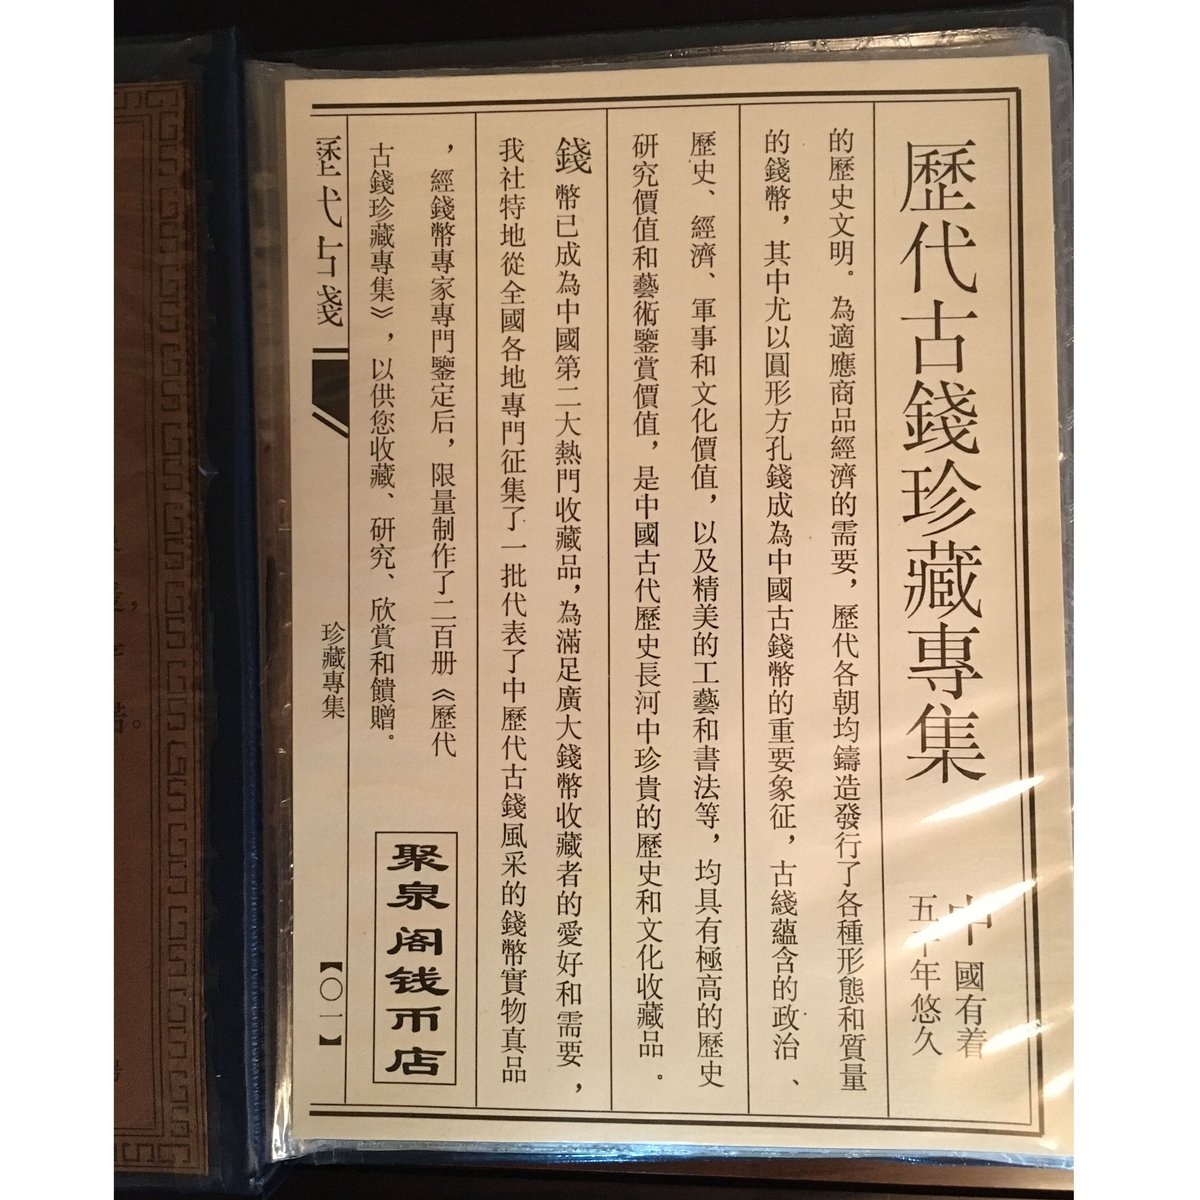 歷代古錢珍藏專集
中國有着
五千年悠久
的歷史文明。為適應商品經濟的需要，歷代各朝均鑄造發行了各種形態和質量
的錢幣，其中尤以圓形方孔錢成為中國古錢幣的重要象征，古綫蘊含的政治、
歷史、經濟、軍事和文化價值，以及精美的工藝和書法等，均具有極高的歷史
研究價值和藝術鑒賞價值，是中國古代歷史長河中珍貴的歷史和文化收藏品．
錢幣已成為中國第二大熱門收藏品，為滿足廣大錢幣收藏者的愛好和需要，
我社特地從全國各地專門征集了一批代表了中歷代古錢風采的錢幣實物真品
，經錢幣專家專門鑒定后，限量制作了二百册《歷代
古錢珍藏專集》，以供您收藏、研究、欣賞和饋贈。
聚泉阁钱币店
歷代古錢
珍藏專集
【〇一】